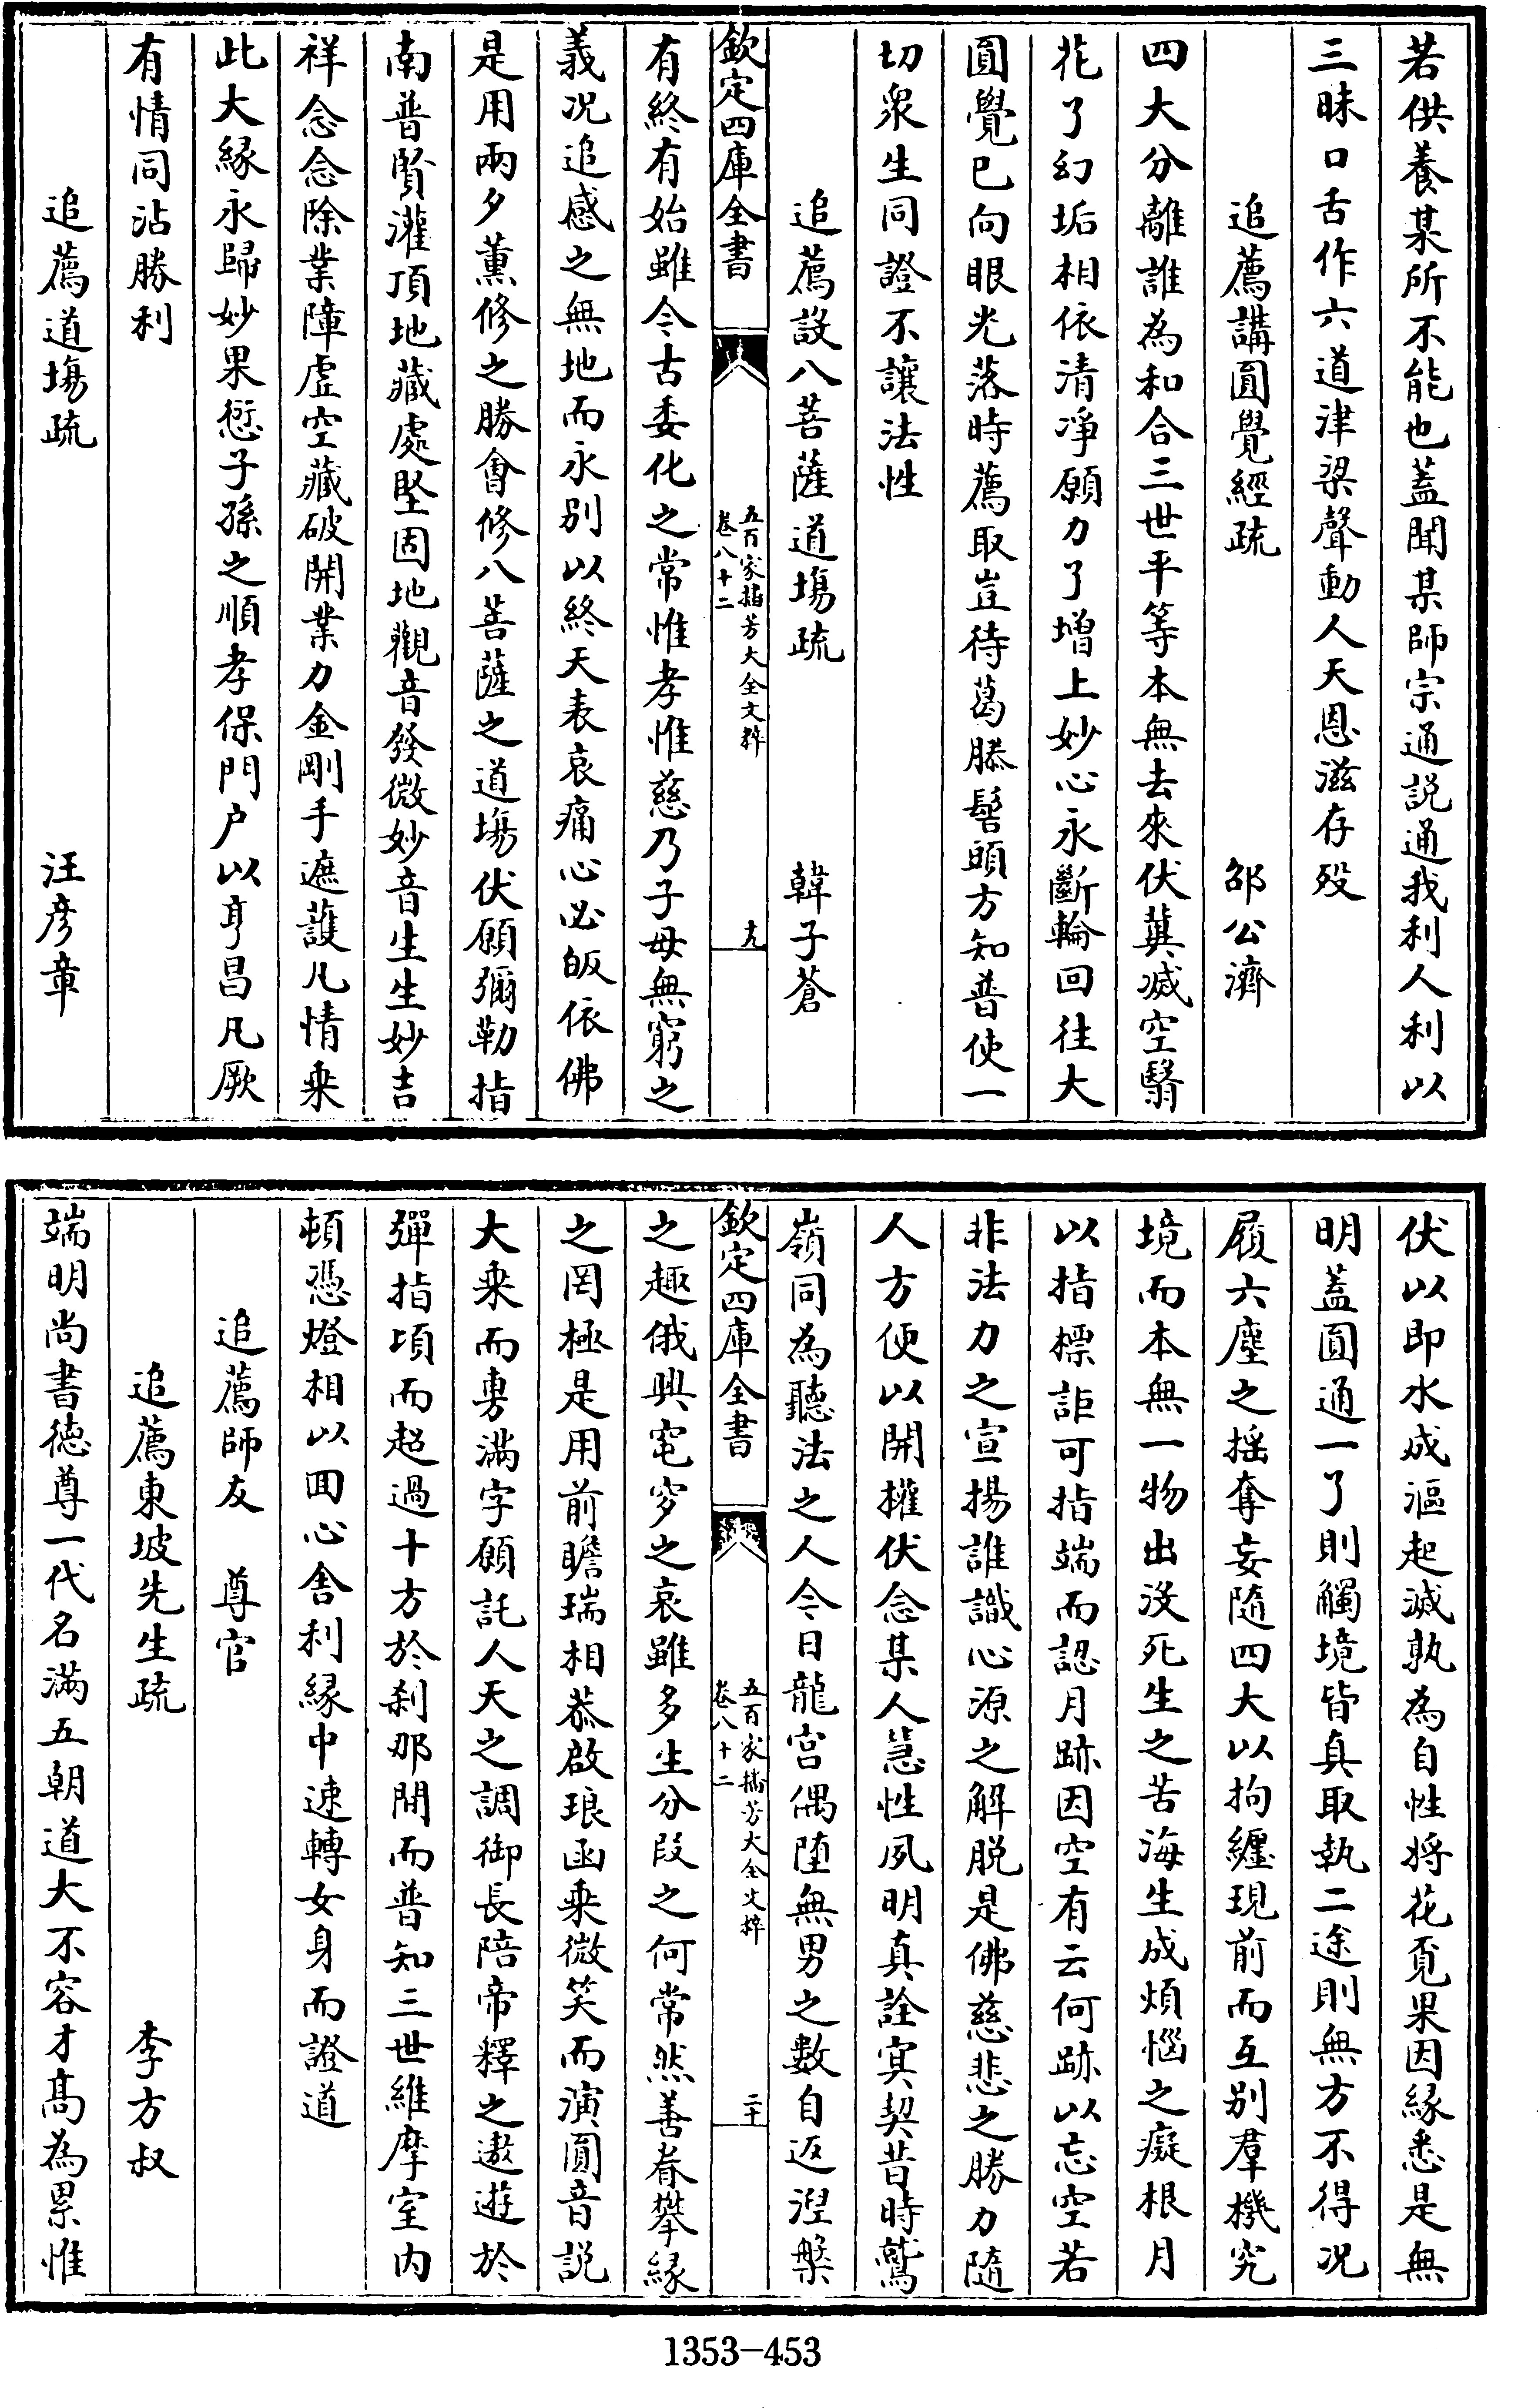 若供養某所不能也蓋聞某師宗通説通我利人利以
三昧口舌作六道津梁聲動人天恩滋存殁
追薦講圓覺經疏　邵公濟
四大分離誰為和合三世平等本無去來伏冀滅空翳
花了幻垢相依清淨願力了增上妙心永斷輪回往大
圓覺已向眼光落時薦取豈待葛藤髻頭方知普使一
切衆生同證不讓法性
追薦設八菩薩道場疏　韓子蒼
欽定四庫全書　五百家播芳大全文粹　卷八十二　十九
有終有始雖今古委化之常惟孝惟慈乃子母無窮之
義况追感之無地而永别以終天表哀痛心必皈依佛
是用兩夕薰修之勝會修八菩薩之道場伏願彌勒指
南普賢灌頂地藏處堅固地觀音發微妙音生生妙吉
祥念念除業障虚空藏破開業力金剛手遮護凡情乘
此大緣永歸妙果愆子孫之順孝保門户以亨昌凡厥
有情同沾勝利
追薦道場疏　汪彦章
伏以即水成漚起滅孰為自性將花覓果因緣悉是無
明蓋圓通一了則觸境皆真取執二途則無方不得况
履六塵之摇奪妄隨四大以拘纏現前而互别羣機究
境而本無一物出没死生之苦海生成煩惱之癡根月
以指標詎可指端而認月跡因空有云何跡以忘空若
非法力之宣揚誰識心源之解脱是佛慈悲之勝力隨
人方便以開權伏念某人慧性夙明真詮冥契昔時鷲
嶺同為聽法之人今日龍宫偶墮無男之數自返涅槃
欽定四庫全書　五百家播芳大全文粹　卷八十二　二十
之趣俄興窀穸之哀雖多生分段之何常然善眷攀緣
之罔極是用前瞻瑞相恭啟琅函乘微笑而演圓音説
大乘而旉滿字願託人天之調御長陪帝釋之遨遊於
彈指頃而超過十方於刹那間而普知三世維摩室内
頓憑燈相以囬心舍利緣中速轉女身而證道
追薦師友　尊官
追薦東坡先生疏　李方叔
端明尚書德尊一代名滿五朝道大不容才髙為累惟
1353—453